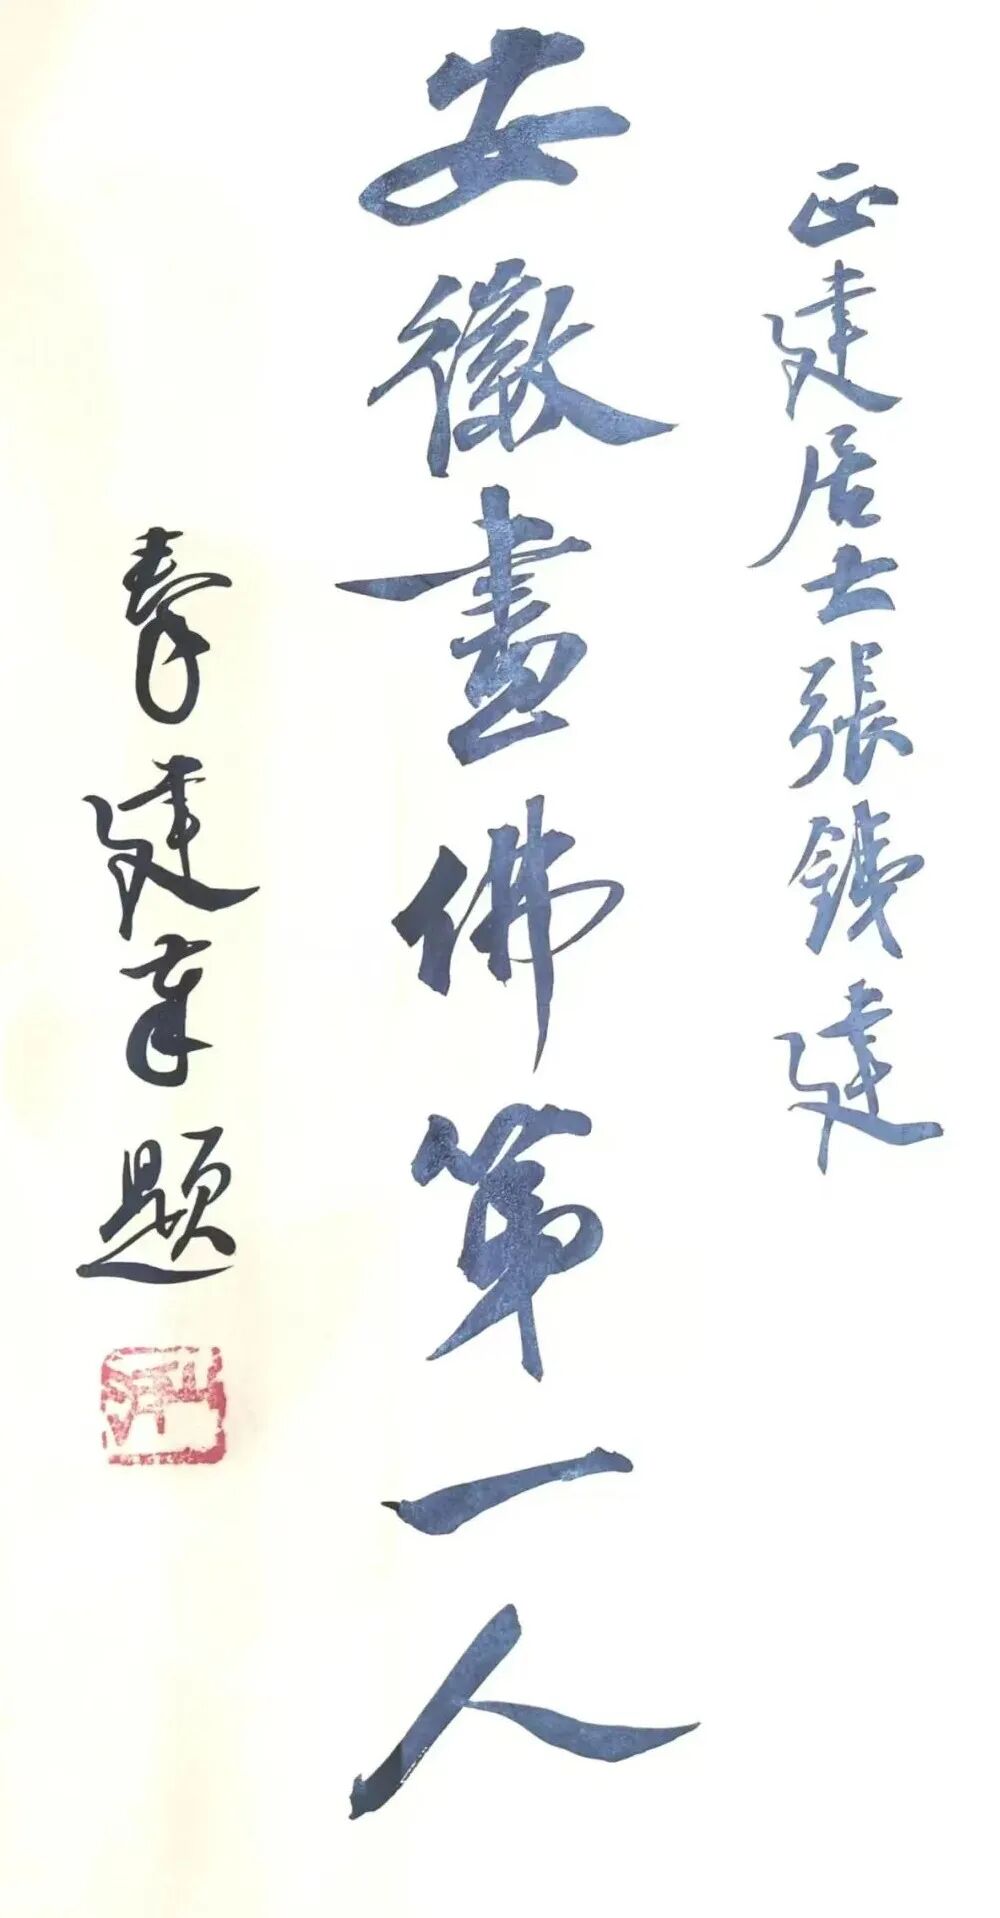 正建居士張銕建
安徽畫佛第一人
秦建章题